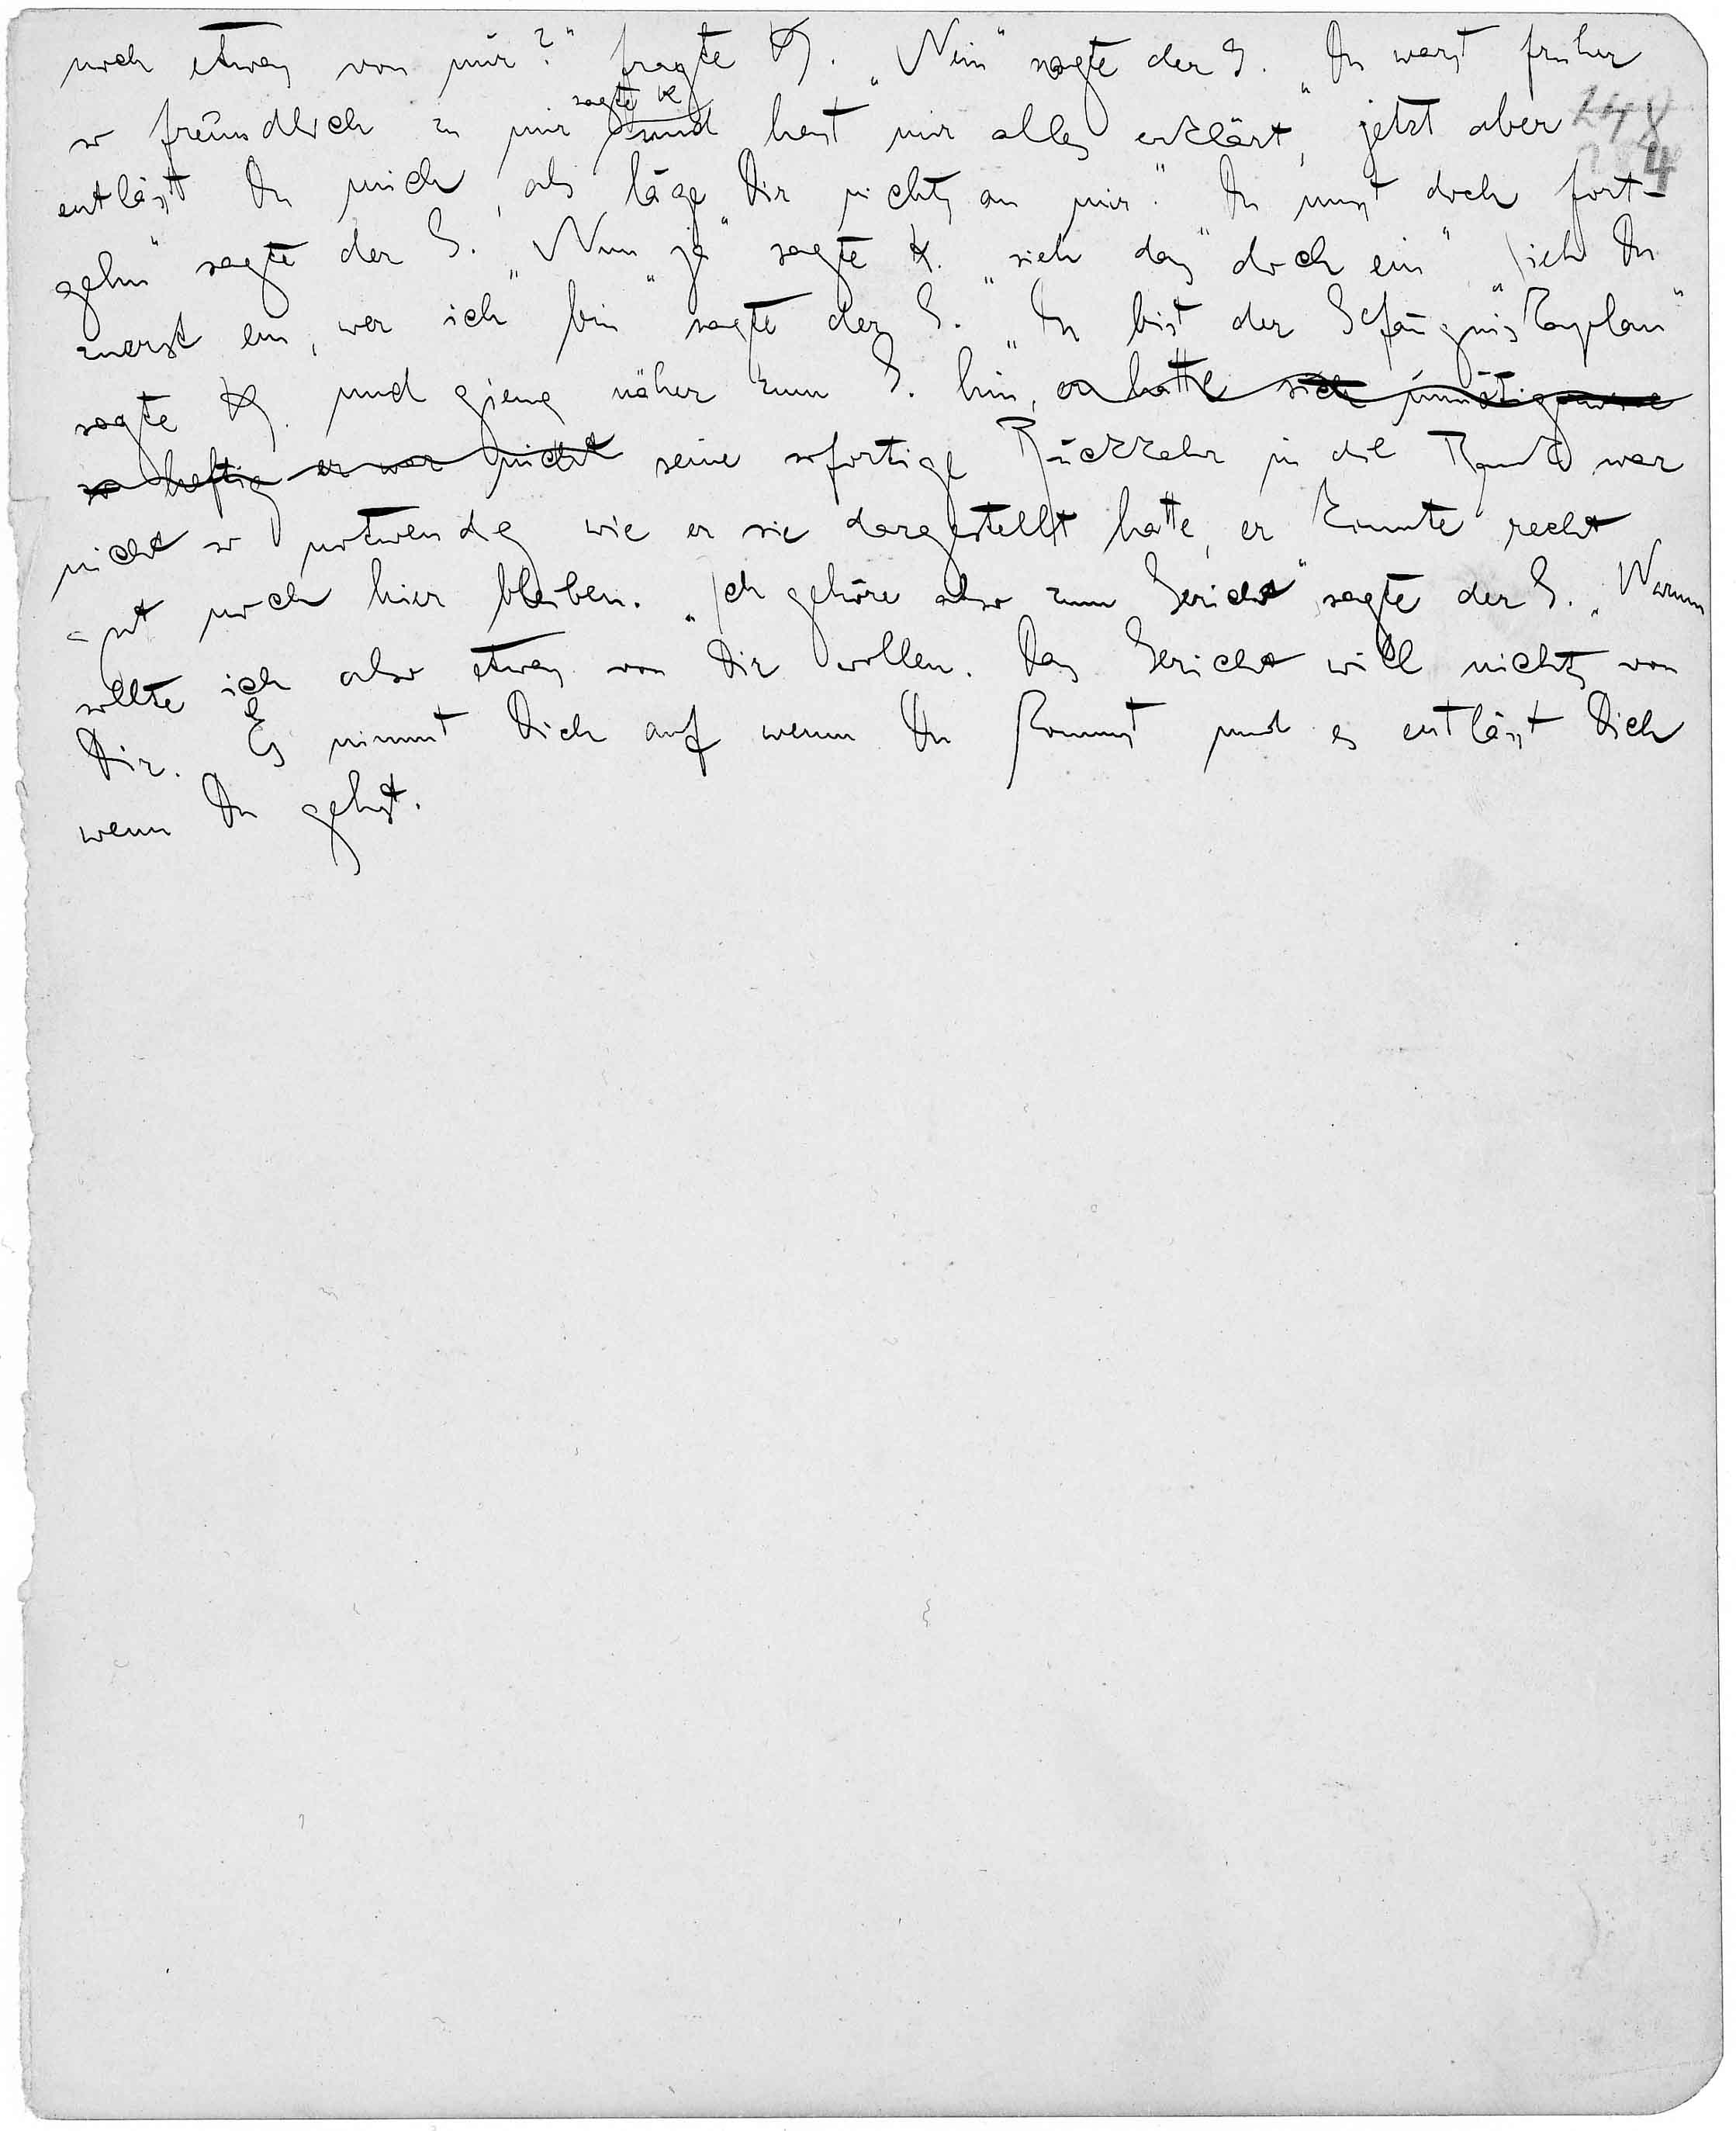 noch etwas von mir?" fragte K. „Nein" sagte der G. „Du warst früher
sagte K
so freundlich zu mir und hast mir alles erklärt, jetzt aber
entläßt Du mich, als läge Dir nichts an mir." „Du mußt doch fort-
gehn" sagte der G. „Nun ja" sagte K. „sieh das doch ein" „Sieh Du
zuerst ein, wer ich bin" sagte der G. „Du bist der Gefängniskaplan"
sagte K. und gieng näher zum G. hin, er hatte sich unnötigerweise
so heftig er war nicht seine sofortige Rückkehr in die Bank war
nicht so notwendig wie er sie dargestellt hatte, er konnte recht
gut noch hier bleiben. „Ich gehöre also zum Gericht" sagte der G. „Warum
sollte ich also etwas von Dir wollen. Das Gericht will nichts von
Dir. Es nimmt Dich auf wenn Du kommst und es entläßt Dich
wenn Du gehst.